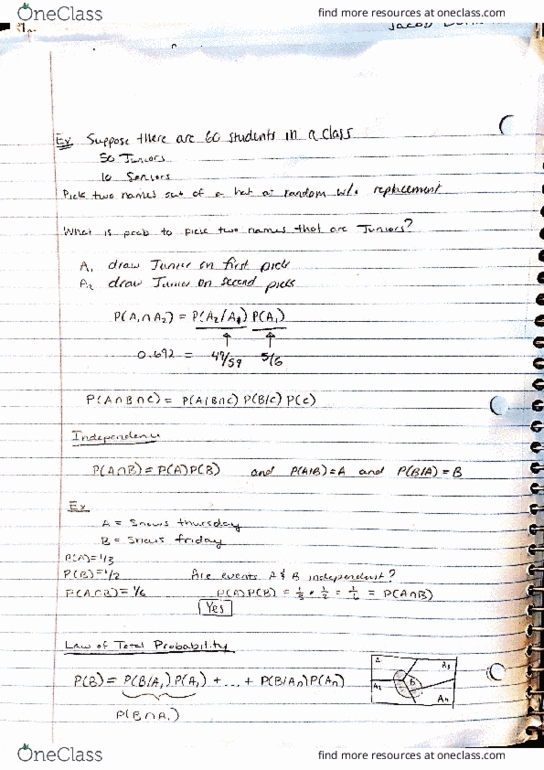 OneClass find more resources at oneclass.com
Ex Suppose there are 60 students in a class
50 Juniors
10 Seniors
Pick two names out of a hat at random w/o replacement
What is prob to pick two names that are Juniors?
A₁ draw Junior on first pick
A₂ draw Junior on second pick
P(A₁∩A₂) = P(A₂/A₁) P(A₁)
0.692 = 49/59 5/6
P(A∩B∩C) = P(A|B∩C) P(B/C) P(C)
Independence
P(A∩B) = P(A)P(B) and P(A|B)=A and P(B/A)=B
Ex
A = Snows thursday
B = Snows friday
P(A)=1/3
P(B)=1/2 Are events A & B independent?
P(A∩B)=1/6 P(A)P(B) = 1/3 * 1/2 = 1/6 = P(A∩B)
Yes
Law of Total Probability
P(B) = P(B/A₁)P(A₁) + ... + P(B/An)P(An)
P(B∩A₁)
A₂ B A₃ An
OneClass find more resources at oneclass.com